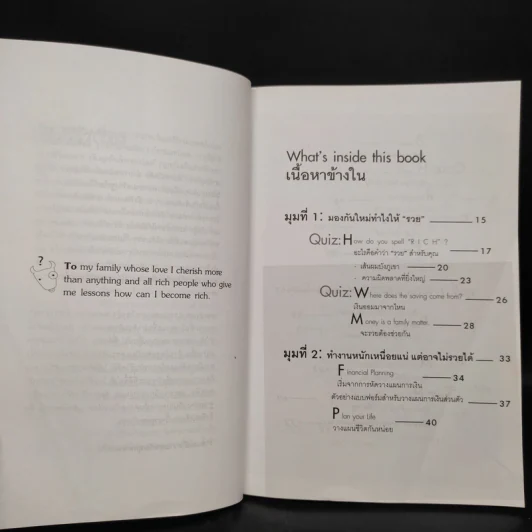 ?
To my family whose love I cherish more
than anything and all rich people who give
me lessons how can I become rich.
What's inside this book
เนื้อหาข้างใน
มุมที่ 1: มองกันใหม่ทำไงให้ "รวย" 15
Quiz: How do you spell "R I C H" ?
อะไรคือคำว่า "รวย" สำหรับคุณ 17
- เส้นผมบังภูเขา 20
- ความผิดพลาดที่ยิ่งใหญ่ 23
Quiz: Where does the saving come from? 26
เงินออมมาจากไหน
Money is a family matter 28
จะรวยต้องช่วยกัน
มุมที่ 2: ทำงานหนักเหนื่อยแน่ แต่อาจไม่รวยได้ 33
Financial Planning 34
เริ่มจากการหัดวางแผนการเงิน
ตัวอย่างแบบฟอร์มสำหรับวางแผนการเงินส่วนตัว 37
Plan your Life 40
วางแผนชีวิตกันหน่อย